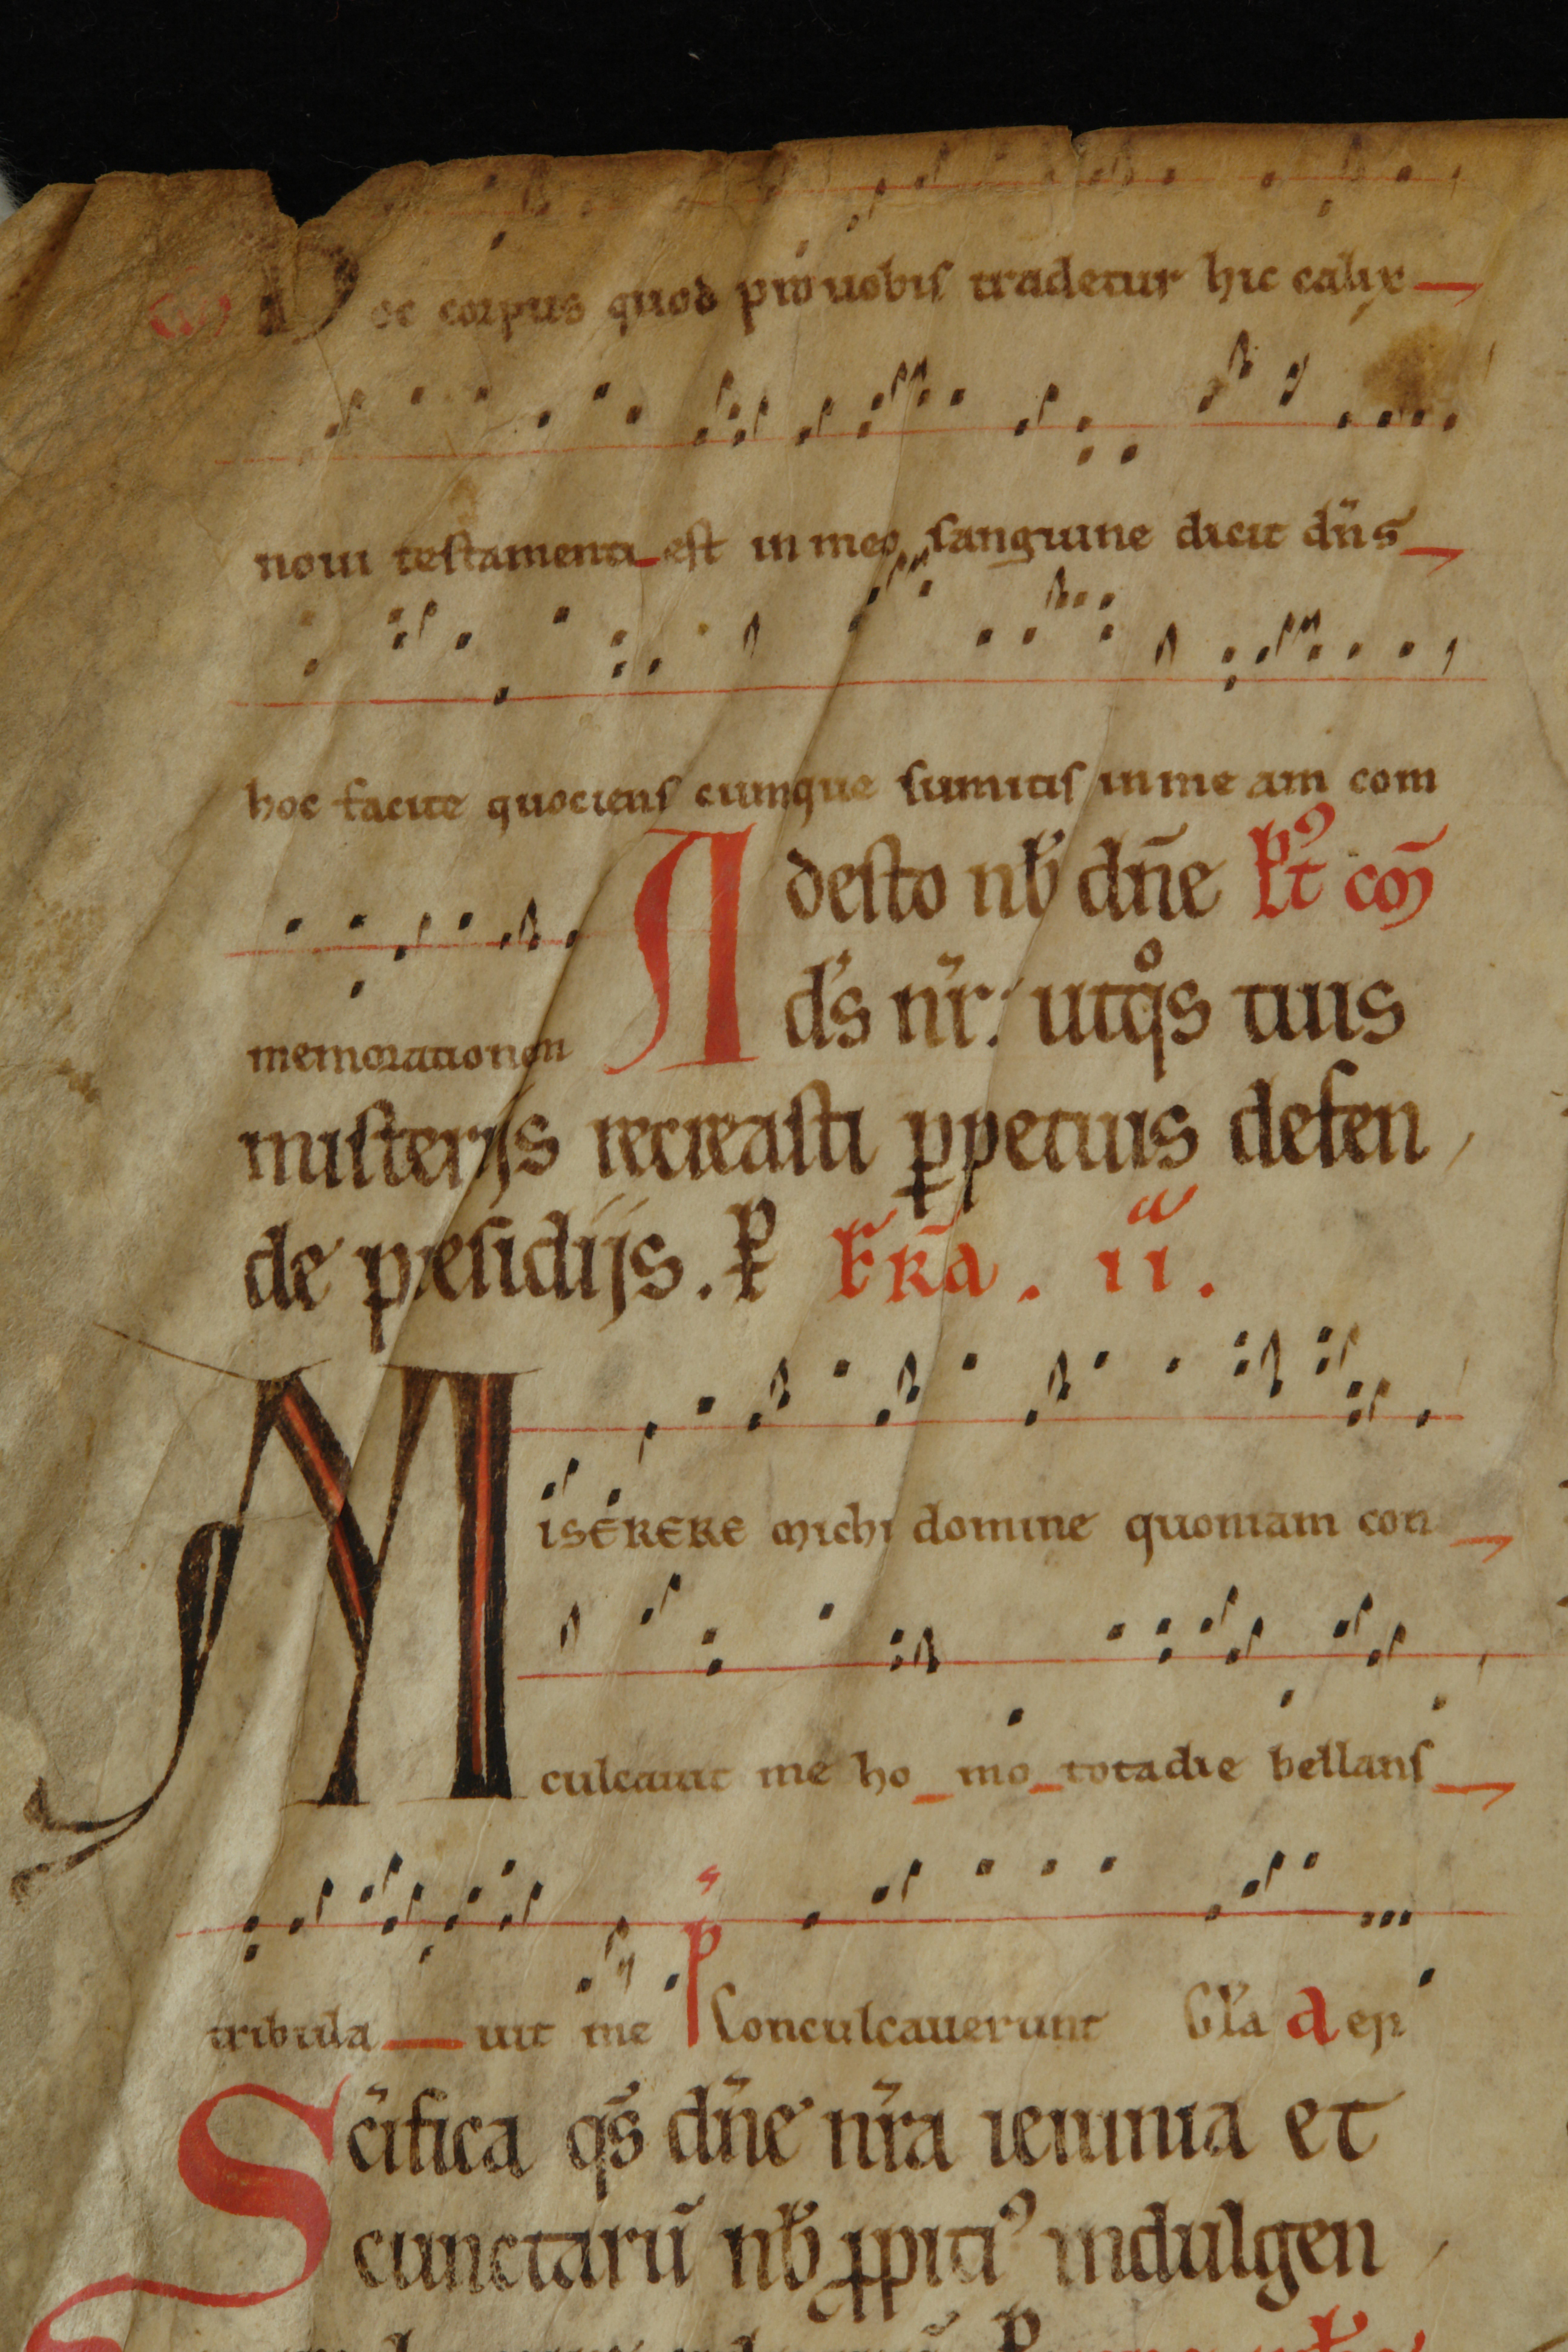 Co) Hoc corpus quod pro uobis tradetur hic calix
noui testamenti est in meo sanguine dicit dn̄s
hoc facite quociens cumque sumitis in me am com
Adesto nb̄ dn̄e Pꝰt cō
memorationem
ds̄ nr̄: utq̊s tuis
misterijs recreasti ꝑpetuis defen
de presidijs. P̱ Fr̄ia. ii.a
Miserere michi domine quoniam con
culcauit me ho mo tota die bellans
tribula uit me p̄s Conculcauerunt Gl̄a a ep̄
Sc̄ifica qs̄ dn̄e nr̄a ieiunia et
cunctarū nb̄ ꝓpitiꝰ indulgen